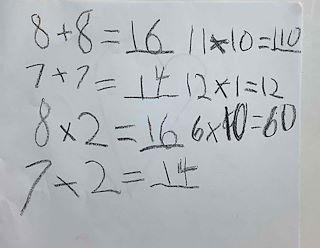 8+8=16 11×10=110
7+7=14 12×1=12
8×2=16 6×10=60
7×2=14